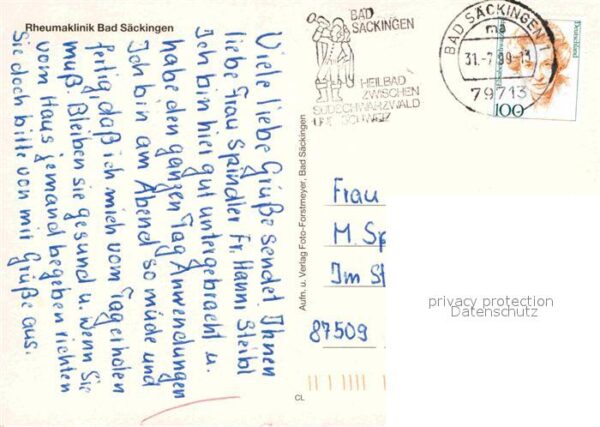 Rheumaklinik Bad Säckingen
Viele liebe Grüße sendet Ihnen
liebe Frau Spindler Fr. Hanni Steibl
Ich bin hier gut untergebracht u.
habe den ganzen Tag Anwendungen
Ich bin am Abend so müde und
fertig, daß ich mich vom Tag erholen
muß. Bleiben sie gesund u. wenn Sie
vom Haus jemand begeben richten
Sie doch bitte von mir Grüße aus.
Aufn. u. Verlag Foto-Forstmeyer, Bad Säckingen
CL
BAD
SÄCKINGEN
HEILBAD
ZWISCHEN
SÜDSCHWARZWALD
SCHWEIZ
BAD SÄCKINGEN 1
ma
31.-7.99-13
79713
Deutschland
100
Frau
M. Sp
Im St
87509
privacy protection
Datenschutz